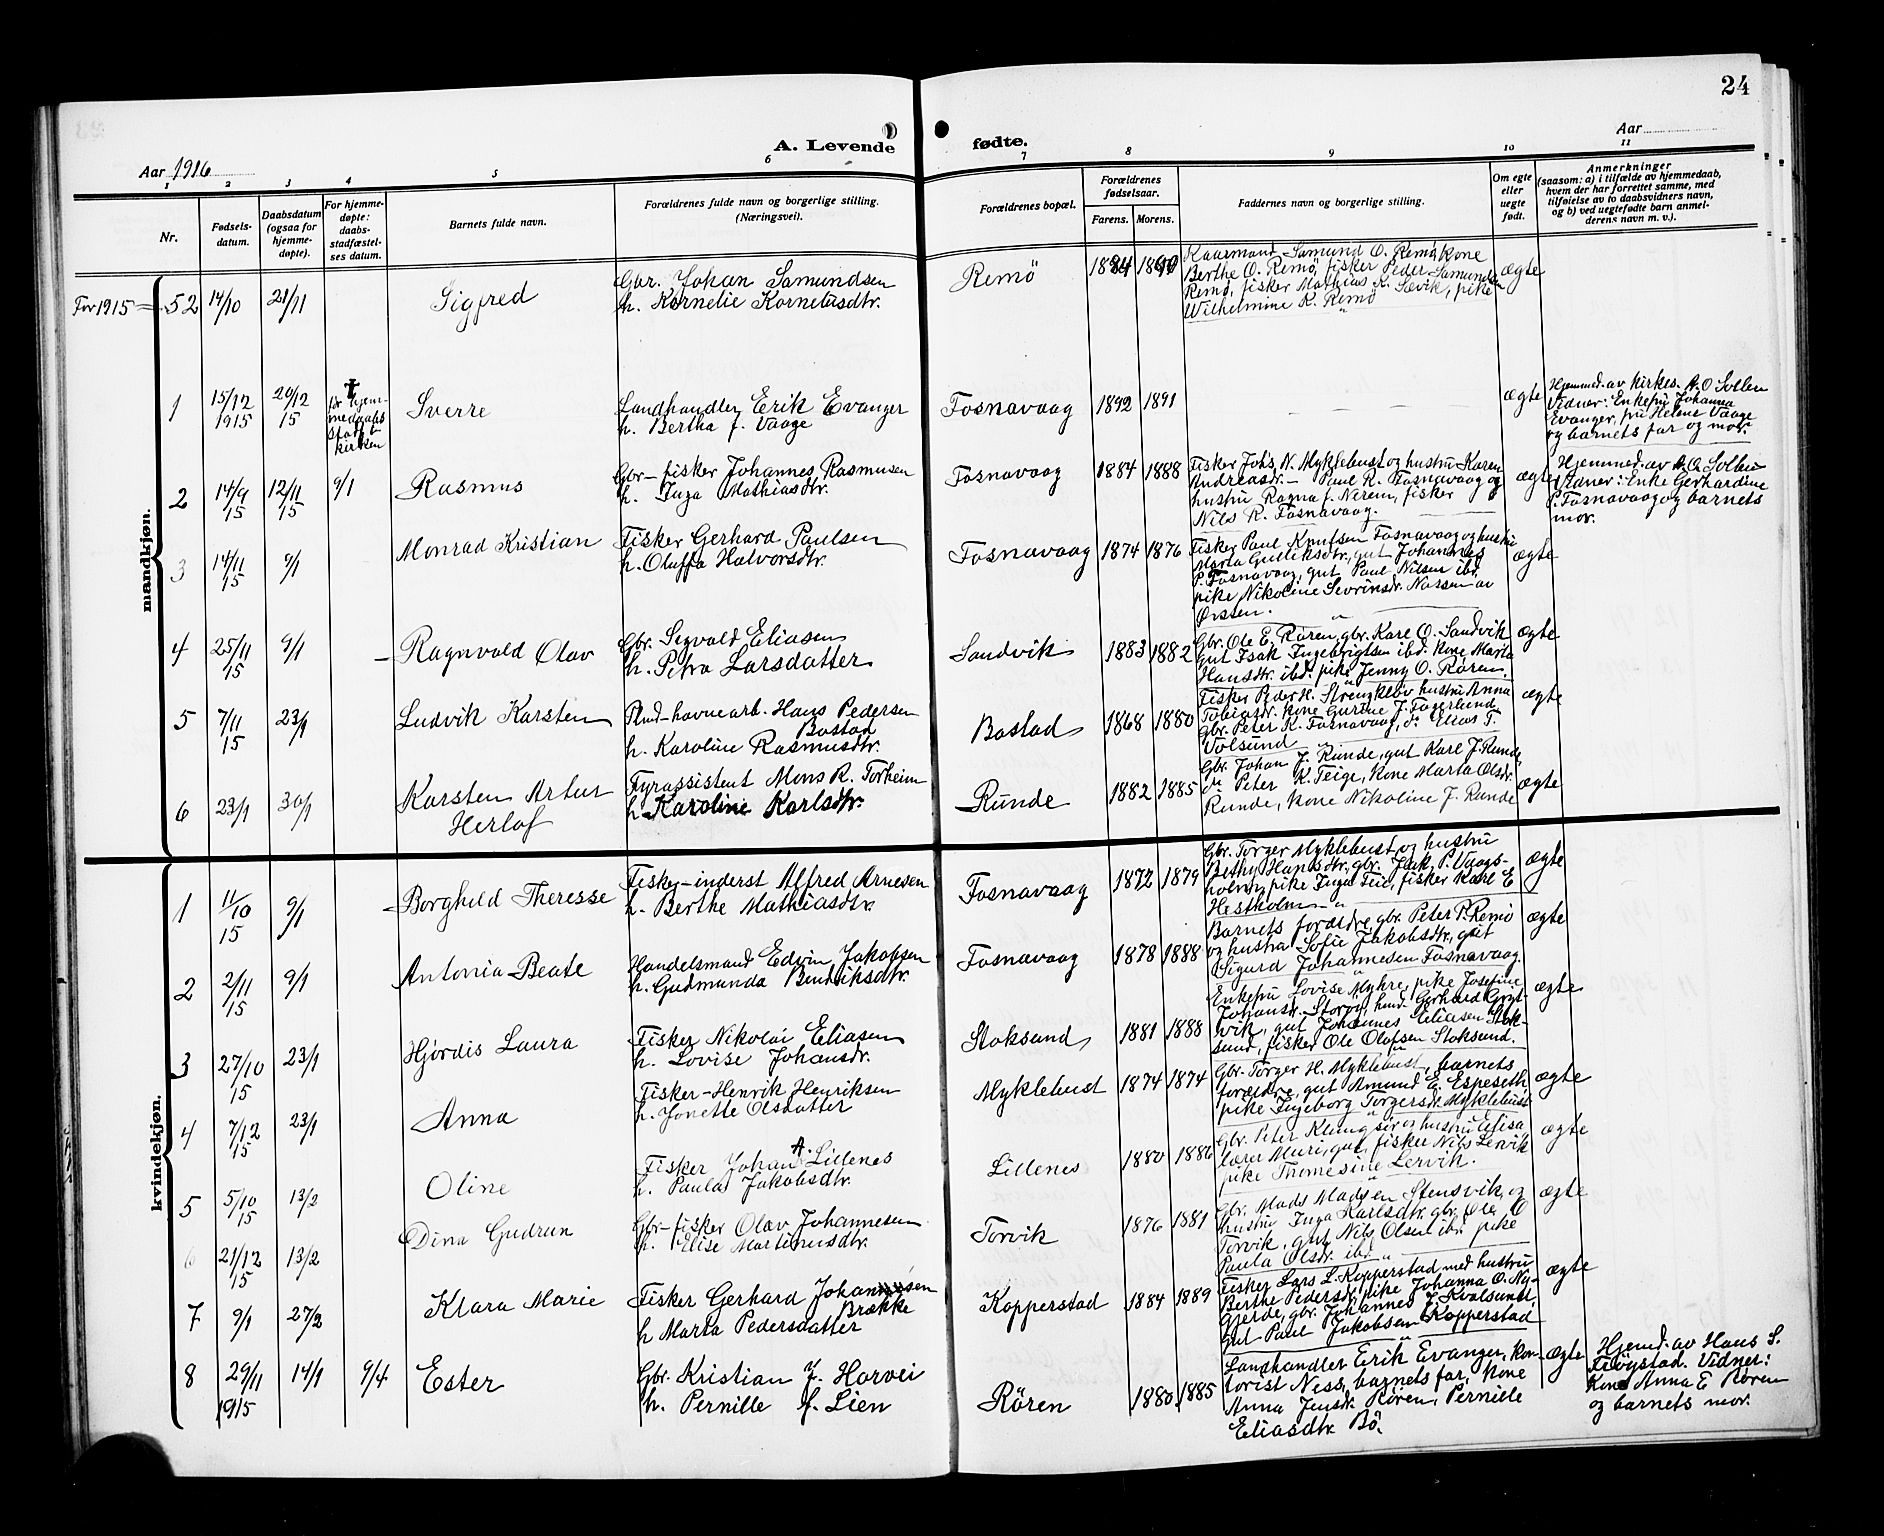 24
A. Levende fødte.
Aar 1916
Aar
1 2 3 4 5 6 7 8 9 10 11
Nr.
Fødsels-
datum.
Daabsdatum
(ogsaa for
hjemme-
døpte).
For hjemme-
døpte:
daabs-
stadfæstel-
ses datum.
Barnets fulde navn.
Forældrenes fulde navn og borgerlige stilling.
(Næringsvei).
Forældrenes bopæl.
Forældrenes
fødselsaar.
Farens. Morens.
Faddernes navn og borgerlige stilling.
Om egte
eller
uegte
født.
Anmerkninger
(saasom: a) i tilfælde av hjemmedaab,
hvem der har forrettet samme, med
tilføielse av to daabsvidners navn,
og b) ved uegtefødte barn anmel-
derens navn m. v.).
mandkjøn.
For 1915 = 52 14/10 21/11
Sigfred
Gbr. Johan Samundsen
h. Kornelie Korneliusdtr.
Remö
1884 1890
Kaarmand Samund O. Remö, kone
Berthe O. Remö, fisker Peder Samundsen
Remö, fisker Mathias K. Sævik, pike
Wilhelmine K. Remö
ægte
1 15/12 1915 20/12 15
før hjem-
medaabs
stadf. i
kirken
Sverre
Landhandler Erik Evanger
h. Bertha f. Vaage
Fosnavaag
1892 1891
ægte
Hjemmed. av kirkes. A. O Sollen
Vidner: Enkefru Johanna
Evanger, fru Helene Vaage
og barnets far og mor.
2 14/9 15 12/11 15 9/1
Rasmus
Gbr-fisker Johannes Rasmusen
h. Inga Mathiasdtr.
Fosnavaag
1884 1888
Fisker Johs N. Myklebust og hustru Karen
Andreasdr. – Paul R. Fosnavaag og
hustru Ragna f. Nerem, fisker
Nils R. Fosnavaag.
ægte
Hjemmed. av A. O. Sollen
Vidner: Enke Gerhardine
P. Fosnavaag og barnets
mor.
3 14/11 15 9/1
Monrad Kristian
Fisker Gerhard Paulsen
h. Oluffa Halvorsdtr.
Fosnavaag
1874 1876
Fisker Paul Knutsen Fosnavaag og hustru
Marta Gulliksdtr., gut Johannes
P. Fosnavaag, gut Paul Nilsen ibd.
pike Nikoline Sevrinsdr. Nassen av
Ørsten.
ægte
4 25/11 15 9/1
Ragnvald Olav
Gbr. Sigvald Eliasen
h. Petra Larsdatter
Sandvik
1883 1882
Gbr. Ole E. Røren, gbr. Karl O. Sandvik
gut Isak Ingebrigtsen ibd. kone Marta
Hansdtr. ibd. pike Jenny O. Røren.
ægte
5 7/11 15 23/1
Ludvik Karsten
Rud-havnearb. Hans Pedersen
Bostad
h. Karoline Rasmusdtr.
Bostad
1868 1880
Fisker Peder H. Strengkløv hustru Anna
Tobiasdr. kone Gurine J. Fagerlund
Gbr. Peter K. Fosnavaag, do Elias T.
Volsund
ægte
6 23/1 30/1
Karsten Artur
Herlof
Fyrassistent Mons R. Torheim
h. Karoline Karlsdtr.
Runde
1882 1885
Gbr. Johan J. Runde, gut Karl J. Runde,
do Peter K. Teige, kone Marta Olsdr.
Runde, kone Nikoline J. Runde
ægte
kvindekjøn.
1 11/10 15 9/1
Borghild Theresse
Fisker-inderst Alfred Arnesen
h. Berthe Mathiasdtr.
Fosnavaag
1872 1879
Gbr. Torger Myklebust og hustru
Bethy Hansdtr, gbr. Jak. P. Vaags-
holm, pike Inga Teie, fisker Karl E
Hestholm
ægte
2 2/11 15 9/1
Antonia Beate
Handelsmand Edvin Jakobsen
h. Gudmunda Bendiksdtr.
Fosnavaag
1878 1888
Barnets forældre, gbr. Peter P. Remö
og hustru Sofie Jakobsdtr., gut
Sigurd Johannesen Fosnavaag
ægte
3 27/10 15 23/1
Hjördis Laura
Fisker Nikolai Eliasen
h. Lovise Johansdr.
Stoksund
1881 1888
Enkefru Lovise Myhre, pike Josefine
Johansdr. Storøy, hund. Gerhard Gryt-
vik, gut Johannes Eliasen Stok-
sund, fisker Ole Olafsen Stoksund.
ægte
4 7/12 15 23/1
Anna
Fisker-Henrik Henriksen
h. Jonette Olsdatter
Myklebust
1874 1874
Gbr. Torger H. Myklebust, barnets
forældre, gut Amund E. Espeseth
pike Ingeborg Torgersdr. Myklebust
ægte
5 5/10 15 13/2
Oline
Fisker Johan A. Lillenes
h. Paula Jakobsdtr.
Lillenes
1880 1886
Gbr. Peter Klungsör og hustru Elisa,
lærer Muri, gut, fisker Nils Lervik
pike Thomesine Lervik.
ægte
6 21/12 15 13/2
Dina Gudrun
Gbr-fisker Olav Johannesen
h. Elise Martinusdtr.
Torvik
1876 1881
Gbr. Mads Madsen Stensvik, og
hustru Inga Karlsdtr. gbr. Ole O
Torvik, gut Nils Olsen ibd. pike
Paula Olsdr. ibd.
ægte
7 9/1 27/2
Klara Marie
Fisker Gerhard Johannesen
Brække
h Marta Pedersdatter
Kopperstad
1884 1889
Fisker Lars L. Kopperstad med hustru
Berthe Pedersdr., pike Johanna O. My-
gjerde, gbr. Johannes J. Kvalsund,
gut Paul Jakobsen Kopperstad
ægte
8 29/11 1915 14/1 9/4
Ester
Gbr. Kristian J. Horvei
h. Pernille f. Lien
Rören
1880 1885
Landhandler Erik Evanger, kon-
torist Ness, barnets far, kone
Anna Jensdr. Rören, Pernille
Eliasdtr. Bö.
ægte
Hjemd. av Hans S.
Fröystad. Vidner:
Kone Anna E Rören
og barnets mor.